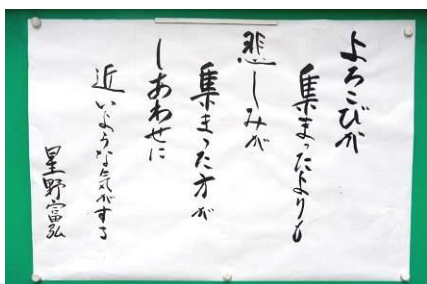 よろこびが
集まったよりも
悲しみが
集まった方が
しあわせに
近いような気がする
星野富弘